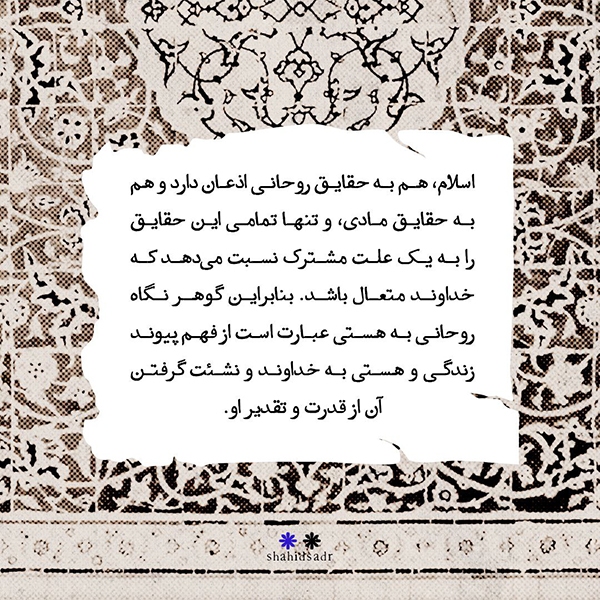 اسلام، هم به حقایق روحانی اذعان دارد و هم
به حقایق مادی، و تنها تمامی این حقایق
را به یک علت مشترک نسبت می‌دهد که
خداوند متعال باشد. بنابراین گوهر نگاه
روحانی به هستی عبارت است از فهم پیوند
زندگی و هستی به خداوند و نشئت گرفتن
آن از قدرت و تقدیر او.
shahidsadr